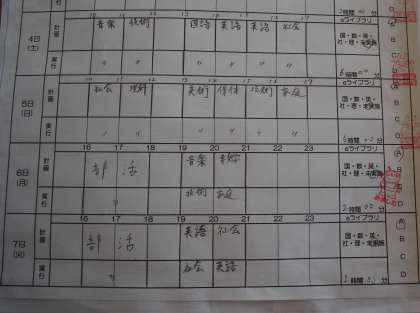 eライブラリ
4日
(土)
計画
音楽 技術 国語 英語 英語 社会
国・数・英・
社・理・未実施
実行
〃 〃 〃 〃 〃 〃
eライブラリ
5日
(日)
計画
社会 理科 美術 保体 技術 家庭
国・数・英・
社・理・未実施
実行
〃 〃 〃 〃 〃 〃
16 17 18 19 20 21 22 23
eライブラリ
6日
(月)
計画
部 活 音楽
国・数・英・
社・理・未実施
A
B
C
D
実行
〃 技術 家庭
2時間00分
16 17 18 19 20 21 22 23
eライブラリ
7日
(火)
計画
部 活 英語 社会
国・数・英・
社・理・未実施
A
B
C
D
実行
〃 社会 英語